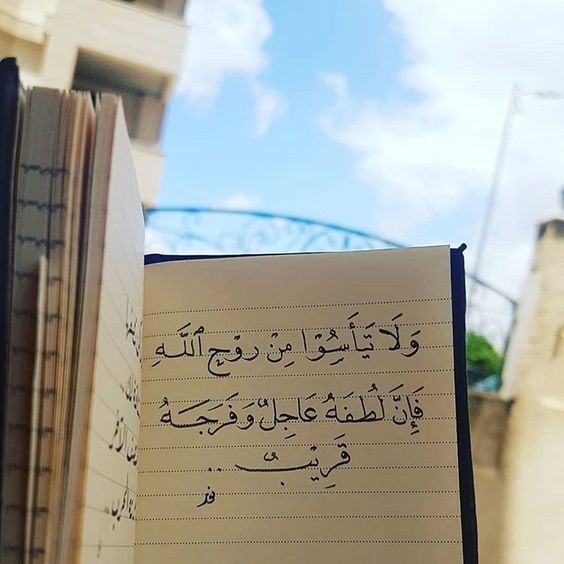 وَلَا تَيْأَسُوا مِنْ رَوْحِ ٱللَّهِ
فَإِنَّ لُطْفَهُ عَاجِلٌ وَفَرَجَهُ
قَرِيبٌ ..